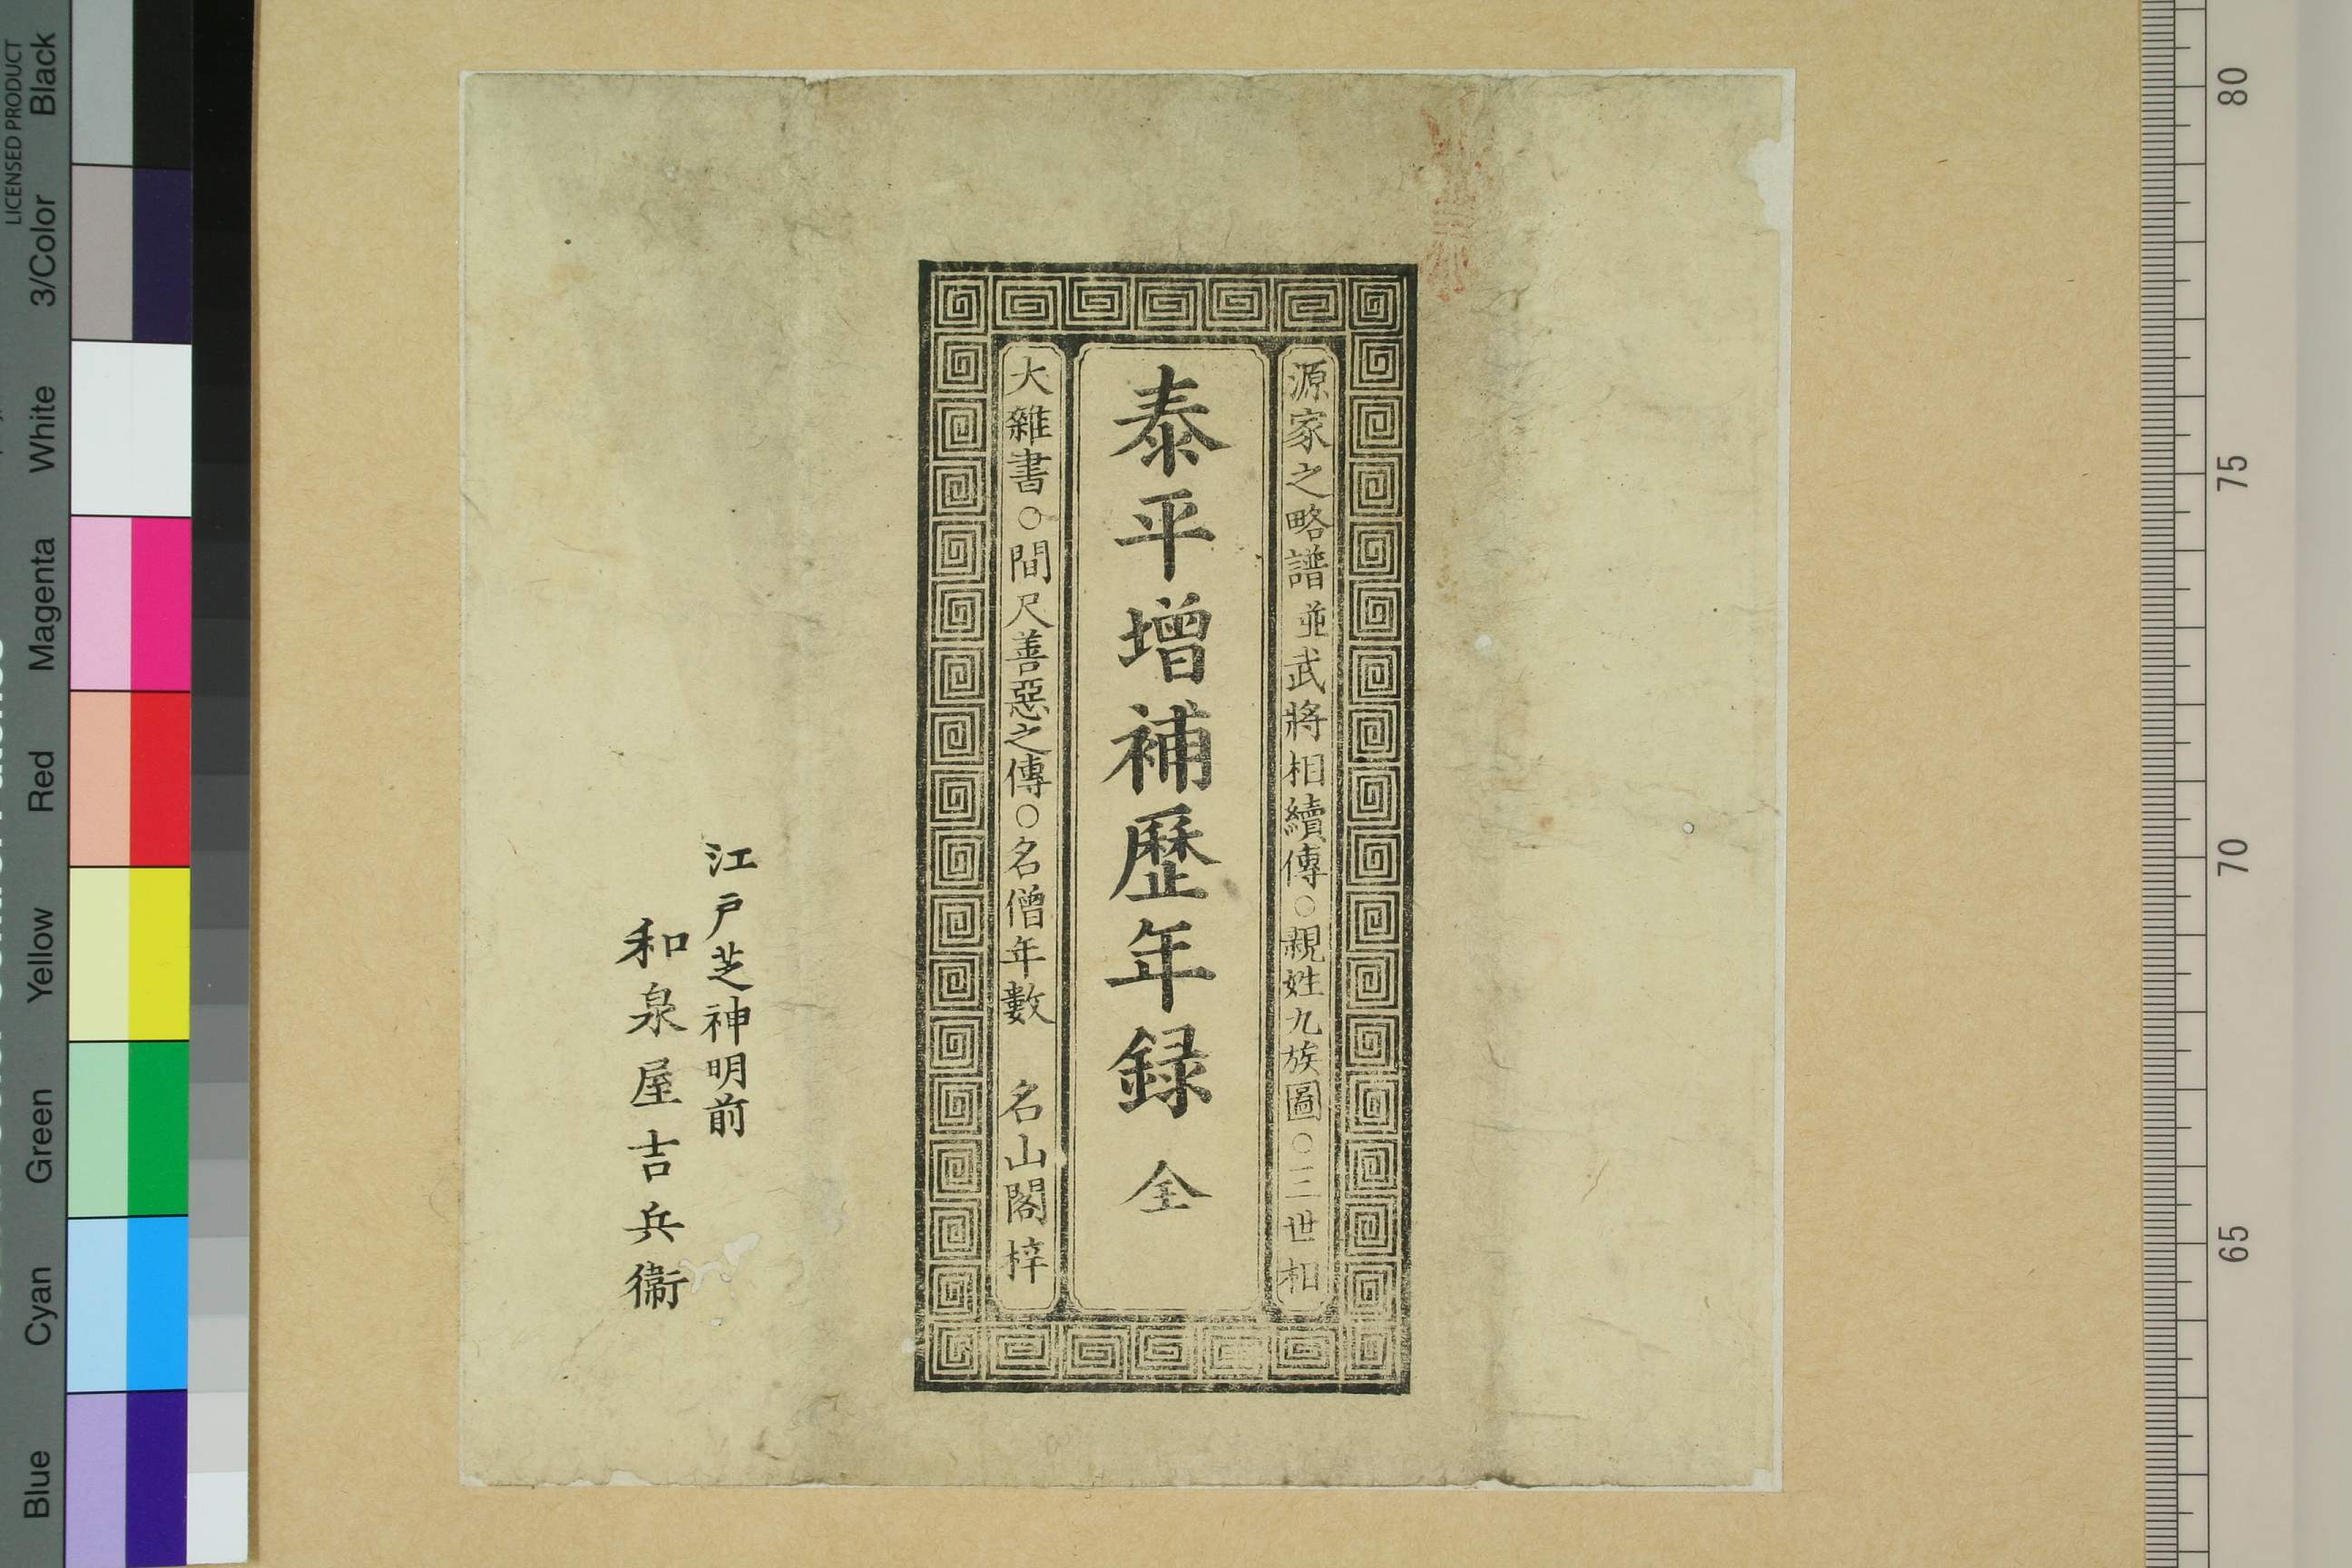 源家之略譜並武將相續傳○親姓九族圖○三世相
泰平增補歷年録 全
大雜書○間尺善惡之傳○名僧年數 名山閣梓
江戸芝神明前
和泉屋吉兵衞
LICENSED PRODUCT
Black
3/Color
White
Magenta
Red
Yellow
Green
Cyan
Blue
80
75
70
65